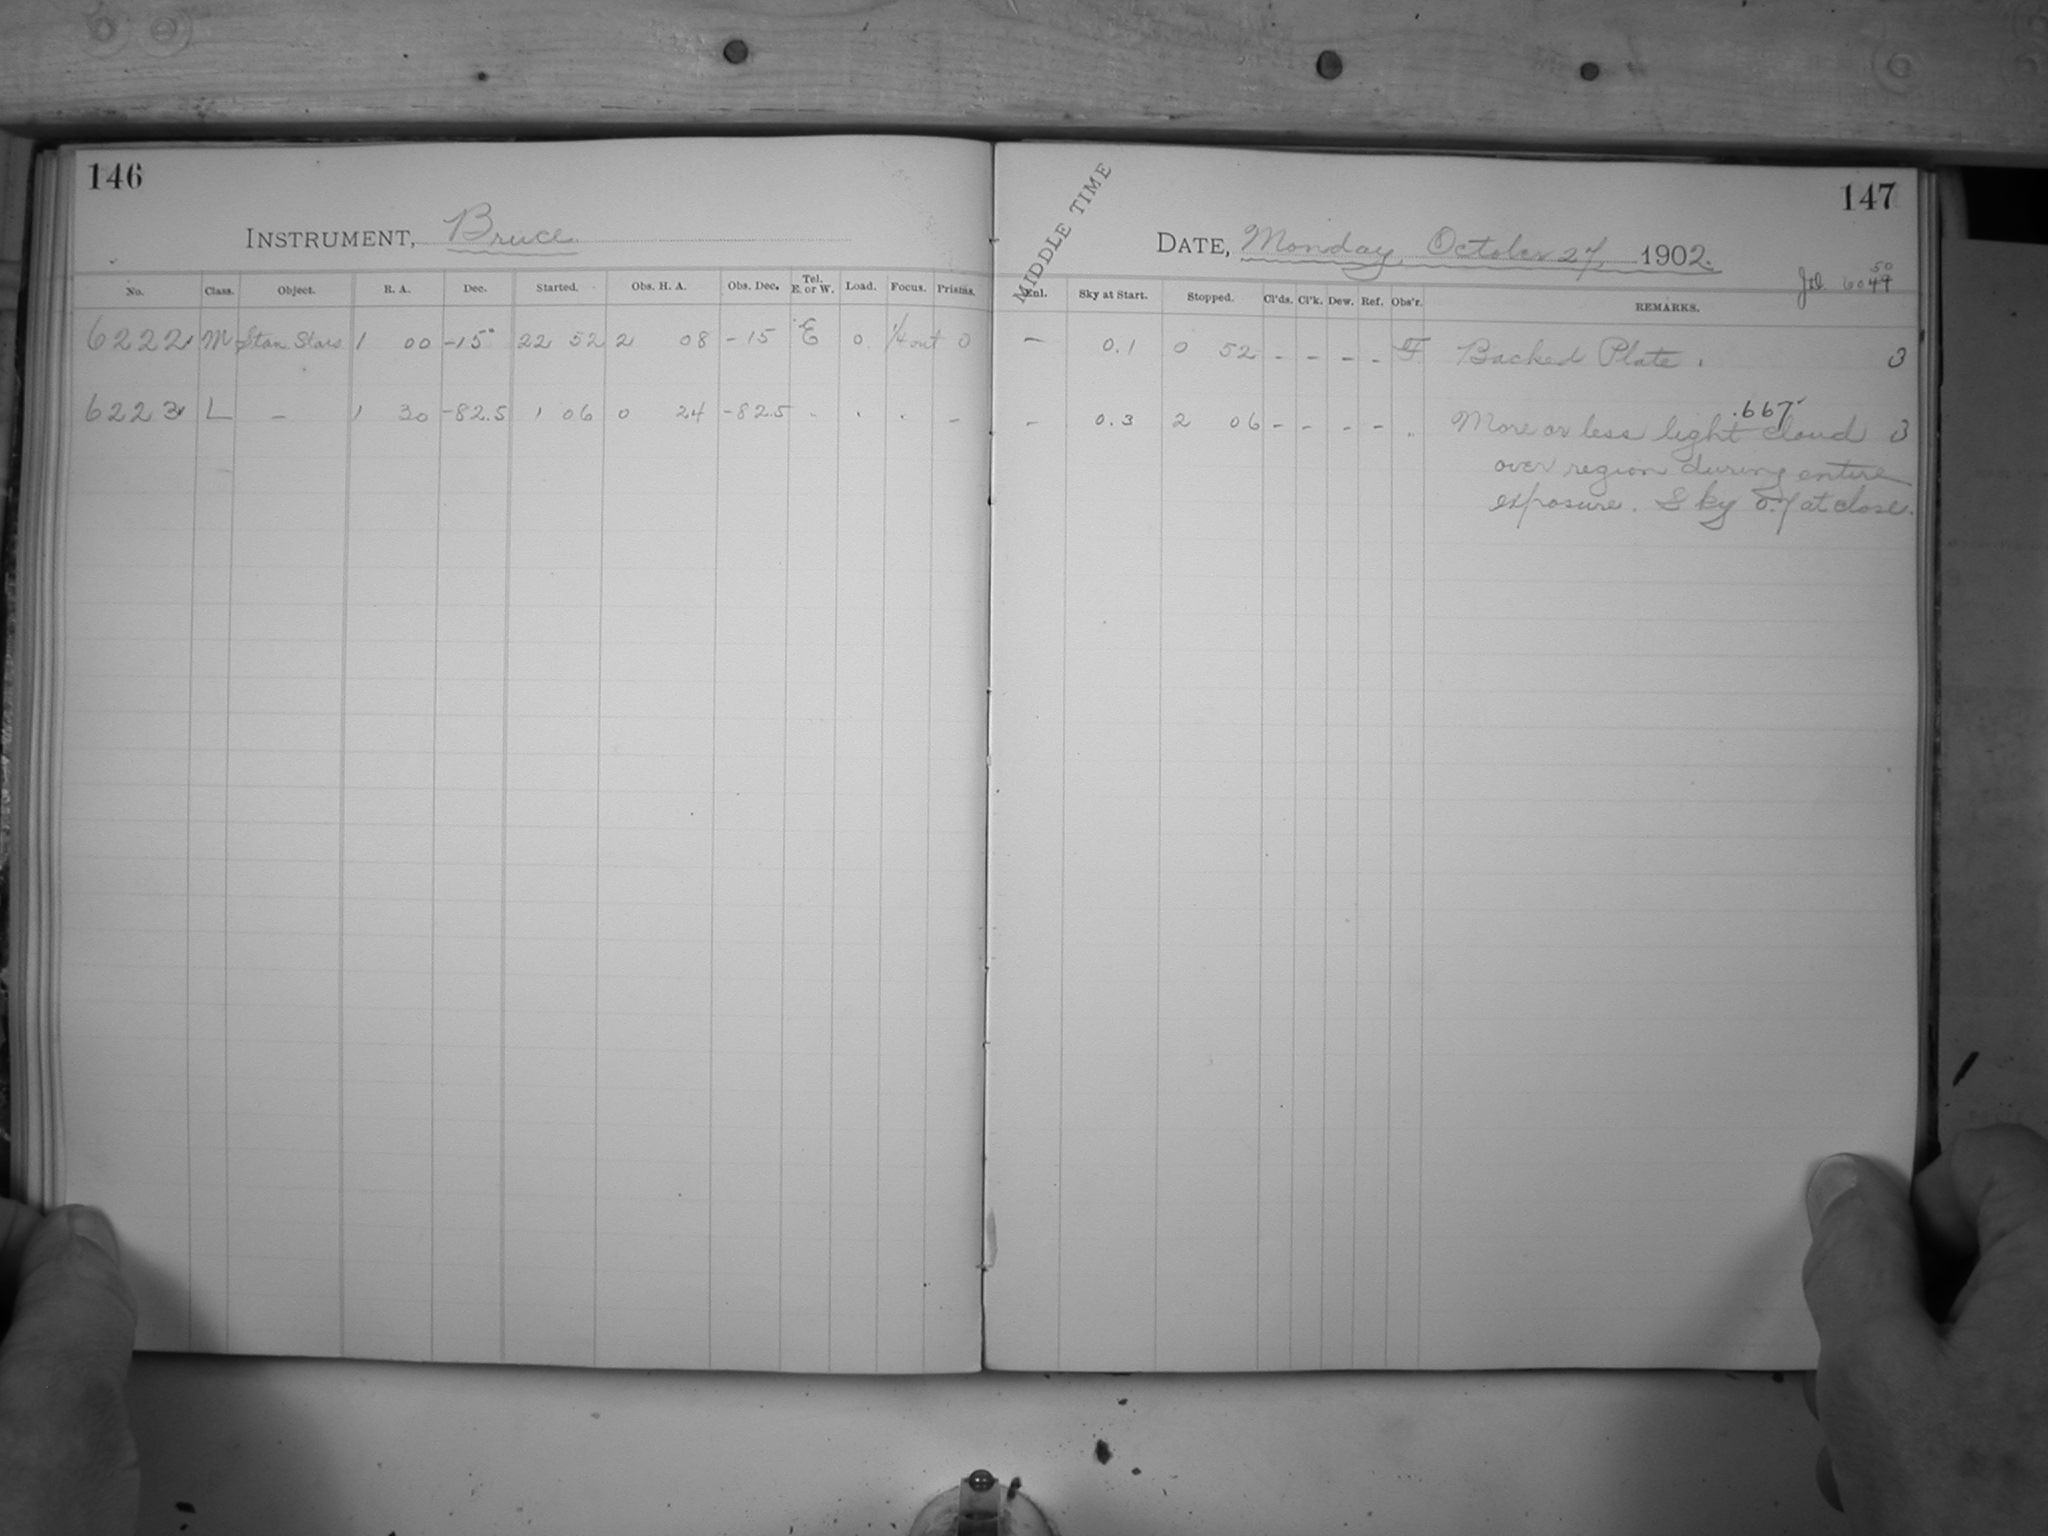 146
INSTRUMENT, Bruce
No. Class. Object. R. A. Dec. Started. Obs. H. A. Obs. Dec. Tel. E. or W. Load. Focus. Prisms.
6222 M Stan Stars 1 00 -15° 22 52 2 08 -15 E 0 1/4 out 0
6223 L - 1 30 -82.5 1 06 0 24 -82.5 " " " -
147
MIDDLE TIME
DATE, Monday October 27, 1902.
50
J.D. 6049
Enl. Sky at Start. Stopped. Cl'ds. Cl'k. Dew. Ref. Obs'r. REMARKS.
- 0.1 0 52 - - - - F Backed Plate. 3
.667
- 0.3 2 06 - - - - " More or less light cloud 3
over region during entire
exposure. Sky 0.7 at close.